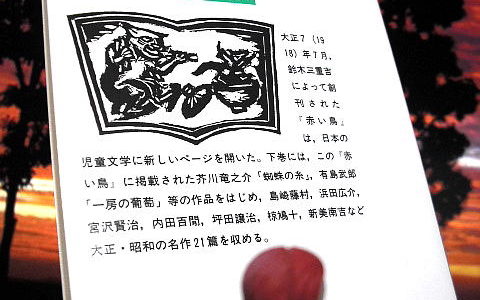 大正7（19
18）年7月,
鈴木三重吉
によって創
刊された
『赤い鳥』
は，日本の
児童文学に新しいページを開いた。下巻には，この『赤
い鳥』に掲載された芥川竜之介「蜘蛛の糸」，有島武郎
「一房の葡萄」等の作品をはじめ，島崎藤村，浜田広介，
宮沢賢治，内田百閒，坪田譲治，椋鳩十，新美南吉など
大正・昭和の名作21篇を収める。